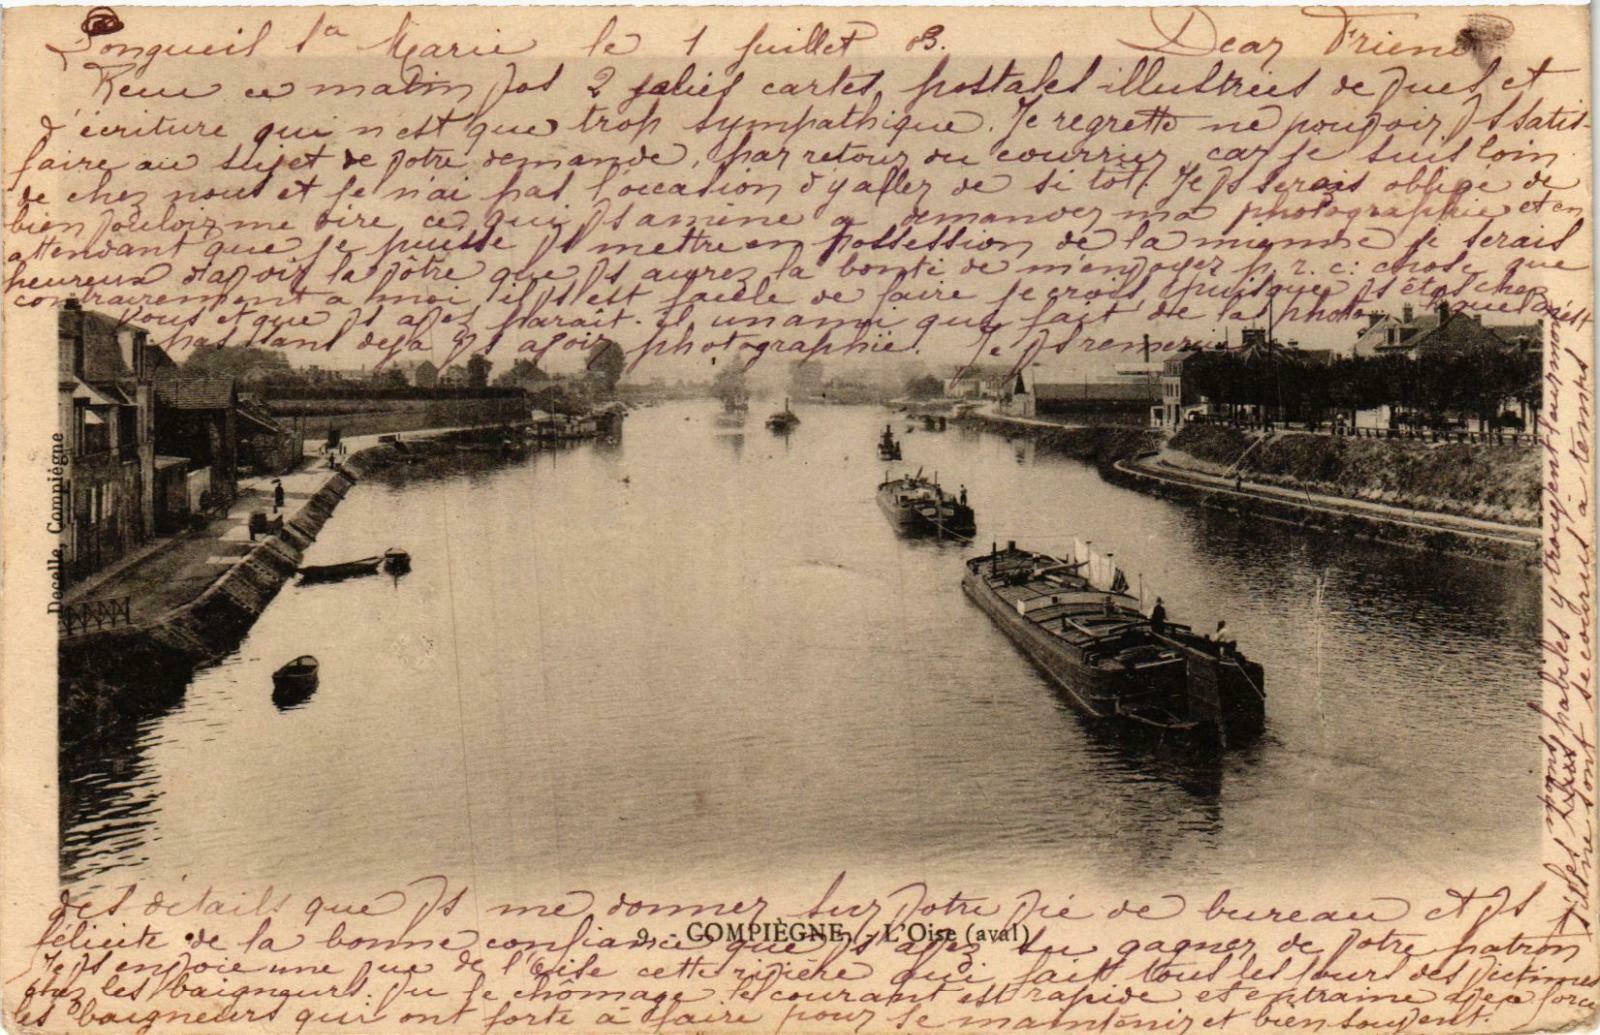 Longueil Ste Marie le 1 Juillet 03. Dear Friend
Reçu ce matin vos 2 jolies cartes postales illustrées de vues et
d'écriture qui n'est que trop sympathique. Je regrette ne pouvoir vs satis-
faire au sujet de votre demande, par retour du courrier, car je suis loin
de chez nous et je n'ai pas l'occasion d'y aller de si tôt. Je vs serais obligé de
bien vouloir me dire ce qui vs amène à demander ma photographie et en
attendant que je puisse vs mettre en possession de la mienne je serais
heureux d'avoir la vôtre que vs aurez la bonté de m'envoyer p. r. c: chose que
contrairement à moi, il vs est facile de faire je crois puisque vs êtes chez
vous et que vs avez paraît-il un ami qui fait de la photo, lequel n'est
pas sans déjà vs avoir photographié. Je vs remercie
des détails que vs me donner sur votre vie de bureau et vs
félicite de la bonne confiance que vs avez su gagner de votre patron
Je vs envoie une vue de l'Oise cette rivière qui fait tous les jours des victimes
chez les baigneurs. Vu le chômage le courant est rapide et entraine avec force
les baigneurs qui ont forte à faire pour se maintenir et bien souvent.
moins habiles y trouvent leur mort
s'ils ne sont secourus à temps
9. - COMPIÈGNE. - L'Oise (aval)
Decelle, Compiègne